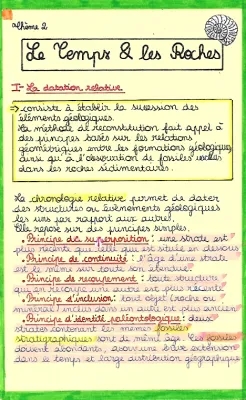 Thème 2
Le Temps & les Roches
I- La datation relative
→ consiste à établir la succession des
éléments géologiques.
La méthode de reconstitution fait appel à
des principes basés sur les relations
géométriques entre les formations géologiques
ainsi qu'à l'observation de fossiles inclus
dans les roches sédimentaires.
La chronologie relative permet de dater
des structures ou évènements géologiques
les uns par rapport aux autres.
Elle repose sur des principes simples.
• Principe de superposition : une strate est
plus récente que celle qui est située en dessous
• Principe de continuité : l'âge d'une strate
est le même sur toute son étendue.
• Principe de recoupement : toute structure
qui en recoupe une autre est plus récente
• Principe d'inclusion : tout objet (roche ou
minéral) inclus dans un autre est plus ancien
• Principe d'identité paléontologique : deux
strates contenant les mêmes fossiles
stratigraphiques sont de même âge. Ces fossiles
doivent abondants, avoir une brève extension
dans le temps et large distribution géographique